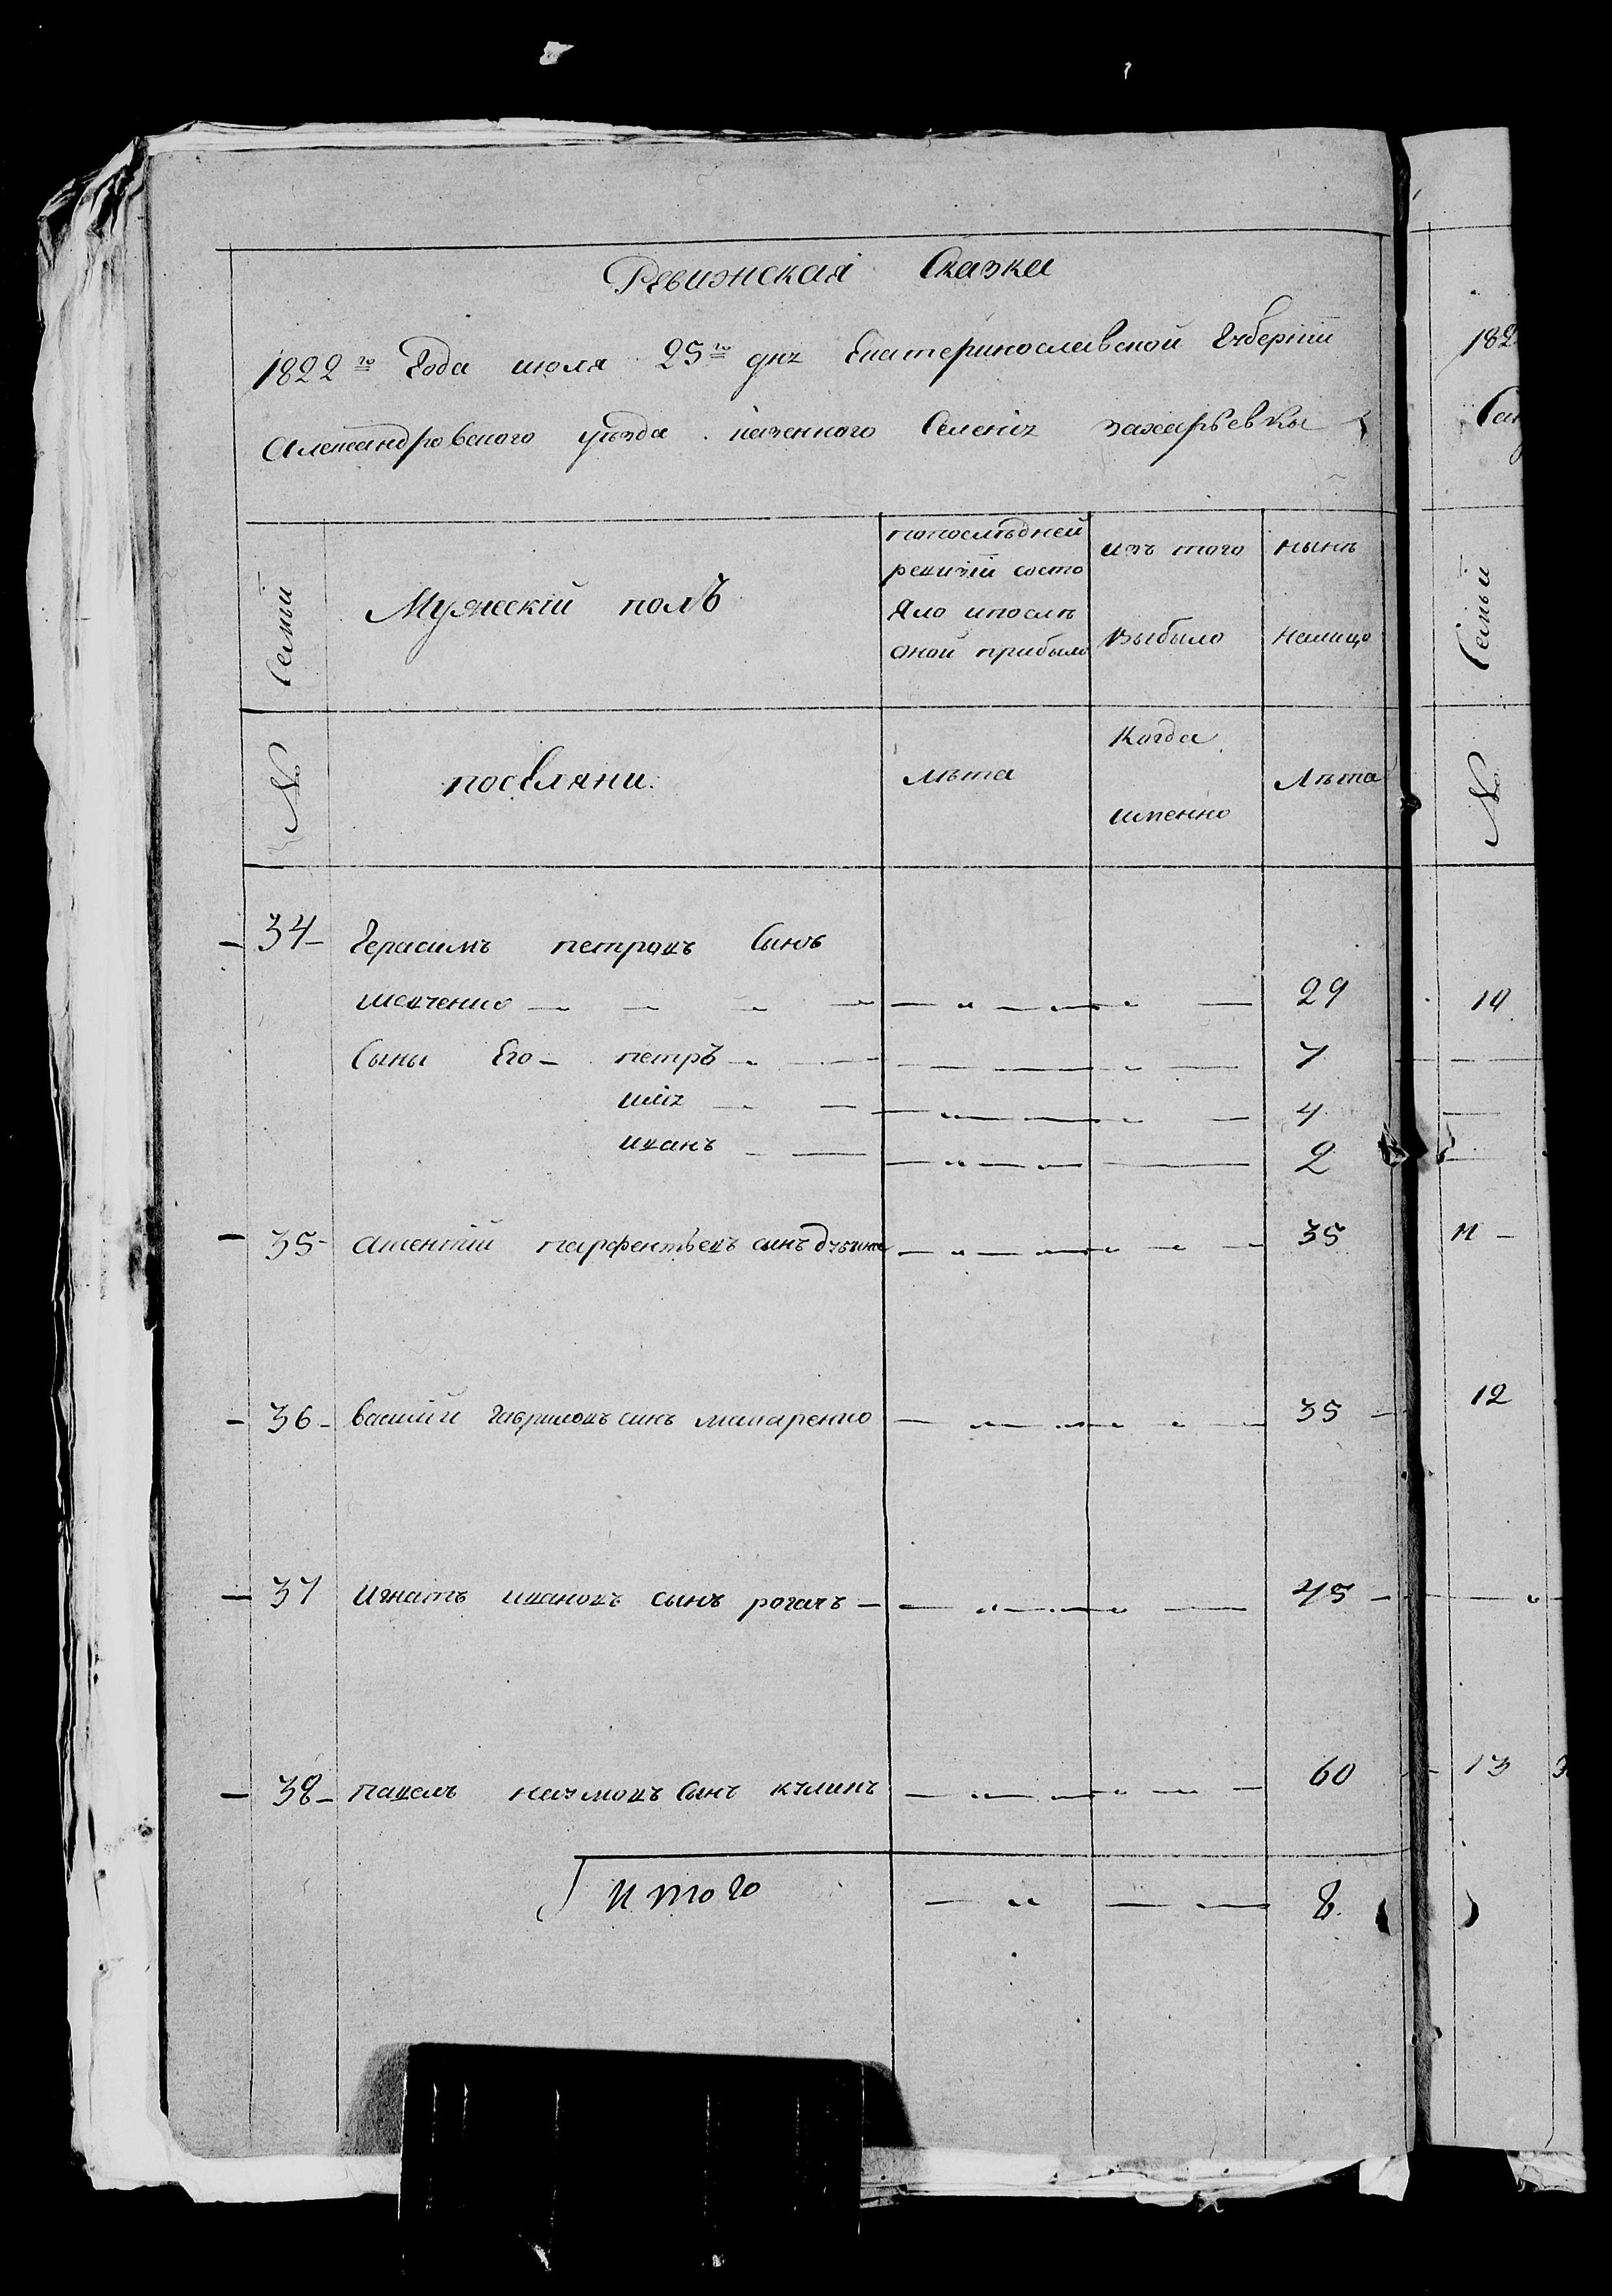 Ревизская Сказка
1822го Года июля 25го дня Екатеринославской Губернiи
Александровского уѣзда казенного Селенiя захарьевки
Семьи
Мужескiй полъ
попослѣдней
ревизiи состо
яло ипослѣ
оной прибыло
изъ того
выбыло
нынѣ
налицо
№
поселяни.
лѣта
Когда
именно
Лѣта
34 Герасимъ петровъ Сынъ
шевченко 29
Сыны Его петръ 7
илiя 4
иванъ 2
35 парфентьевъ сынъ 35
36 василiй гавриловъ сынъ макаренко 35
37 игнатъ ивановъ сынъ рогачъ 45
38 павелъ наумовъ Сынъ 60
итого 8
182
Семьи
№
10
11
12
13